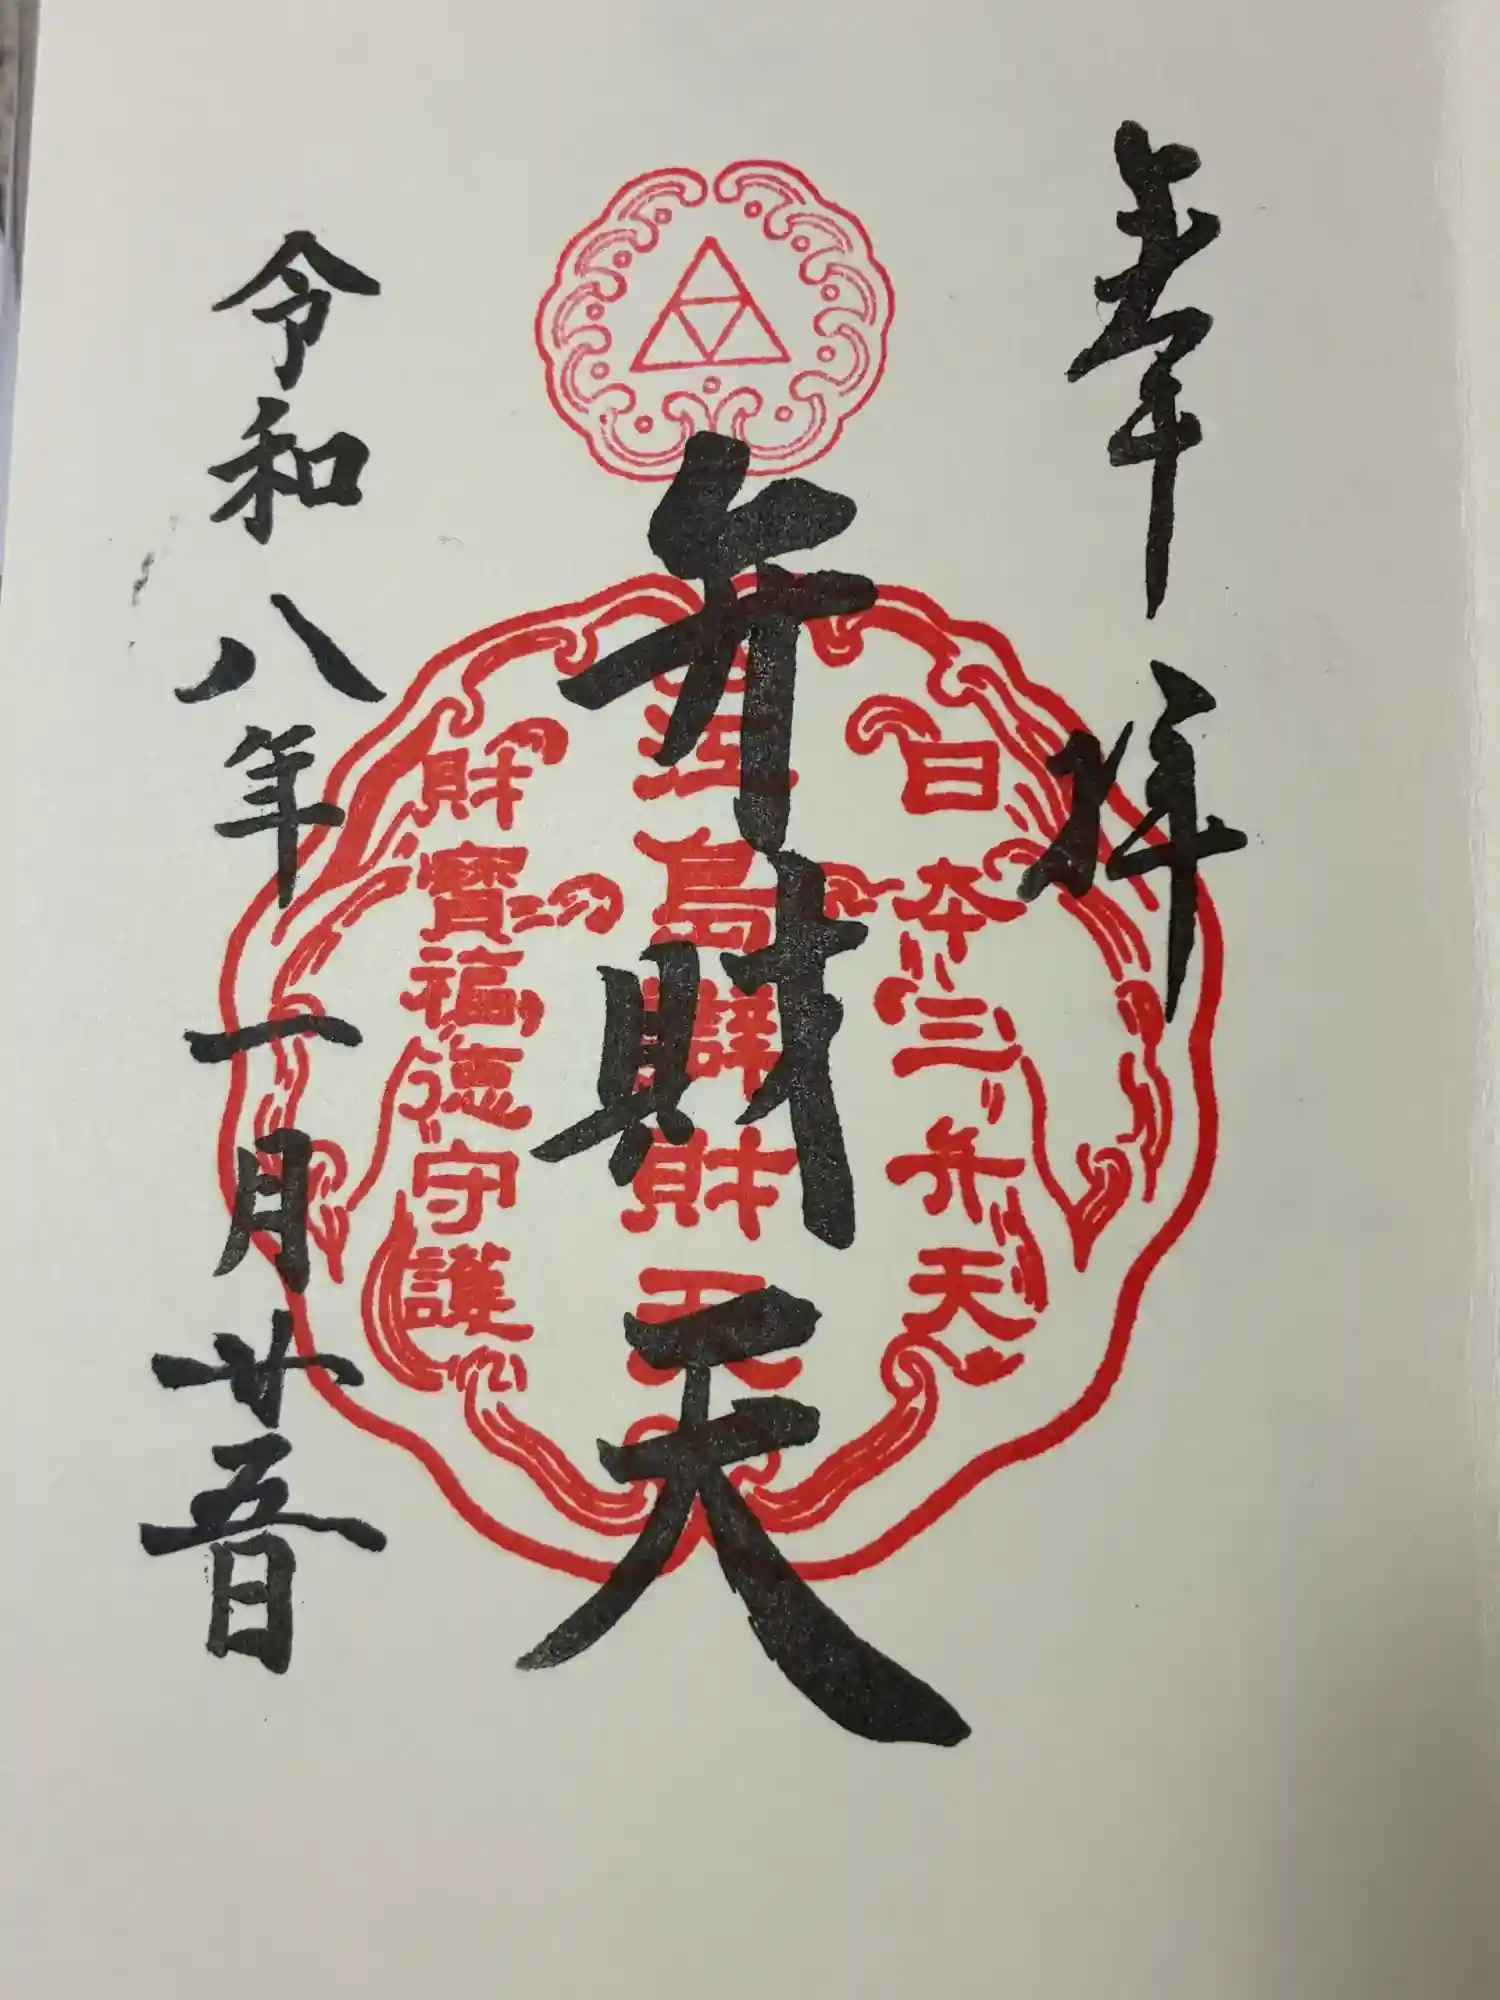 奉拝
日本三弁天
江島辯財天
財寶福徳守護
弁財天
令和八年一月廿五日